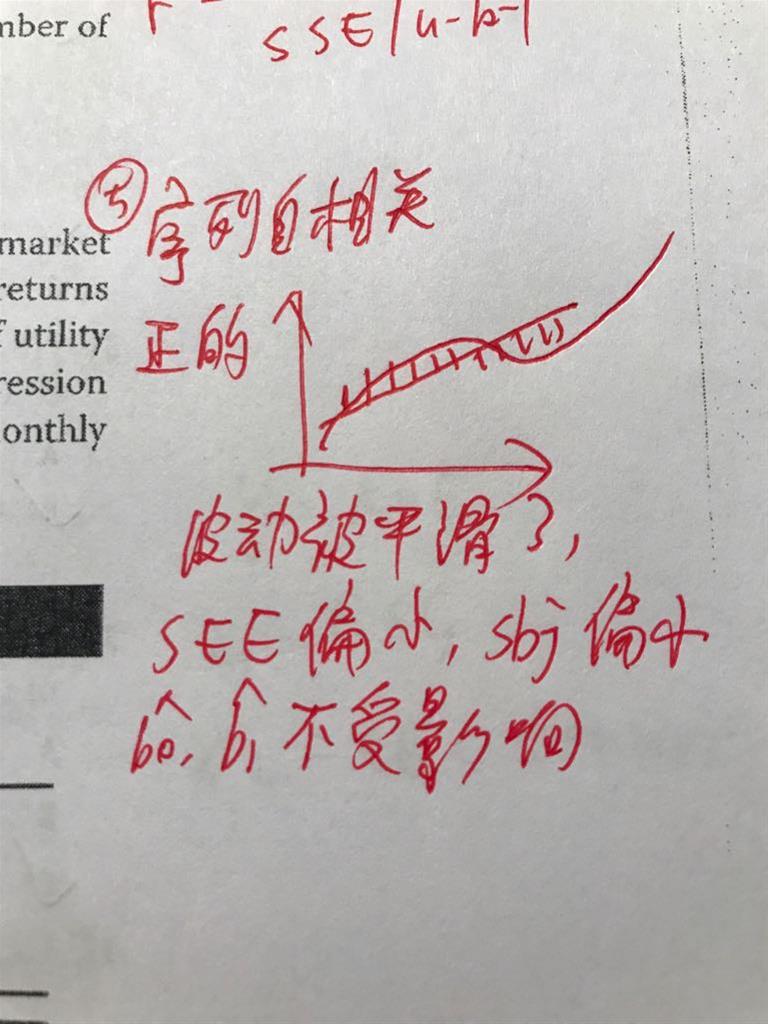 mber of
SSE/n-k-1
market
⑤ 序列自相关
returns
utility
正的
ression
onthly
波动被平滑了,
SEE偏小, sbj偏小
b̂0, b̂1 不受影响